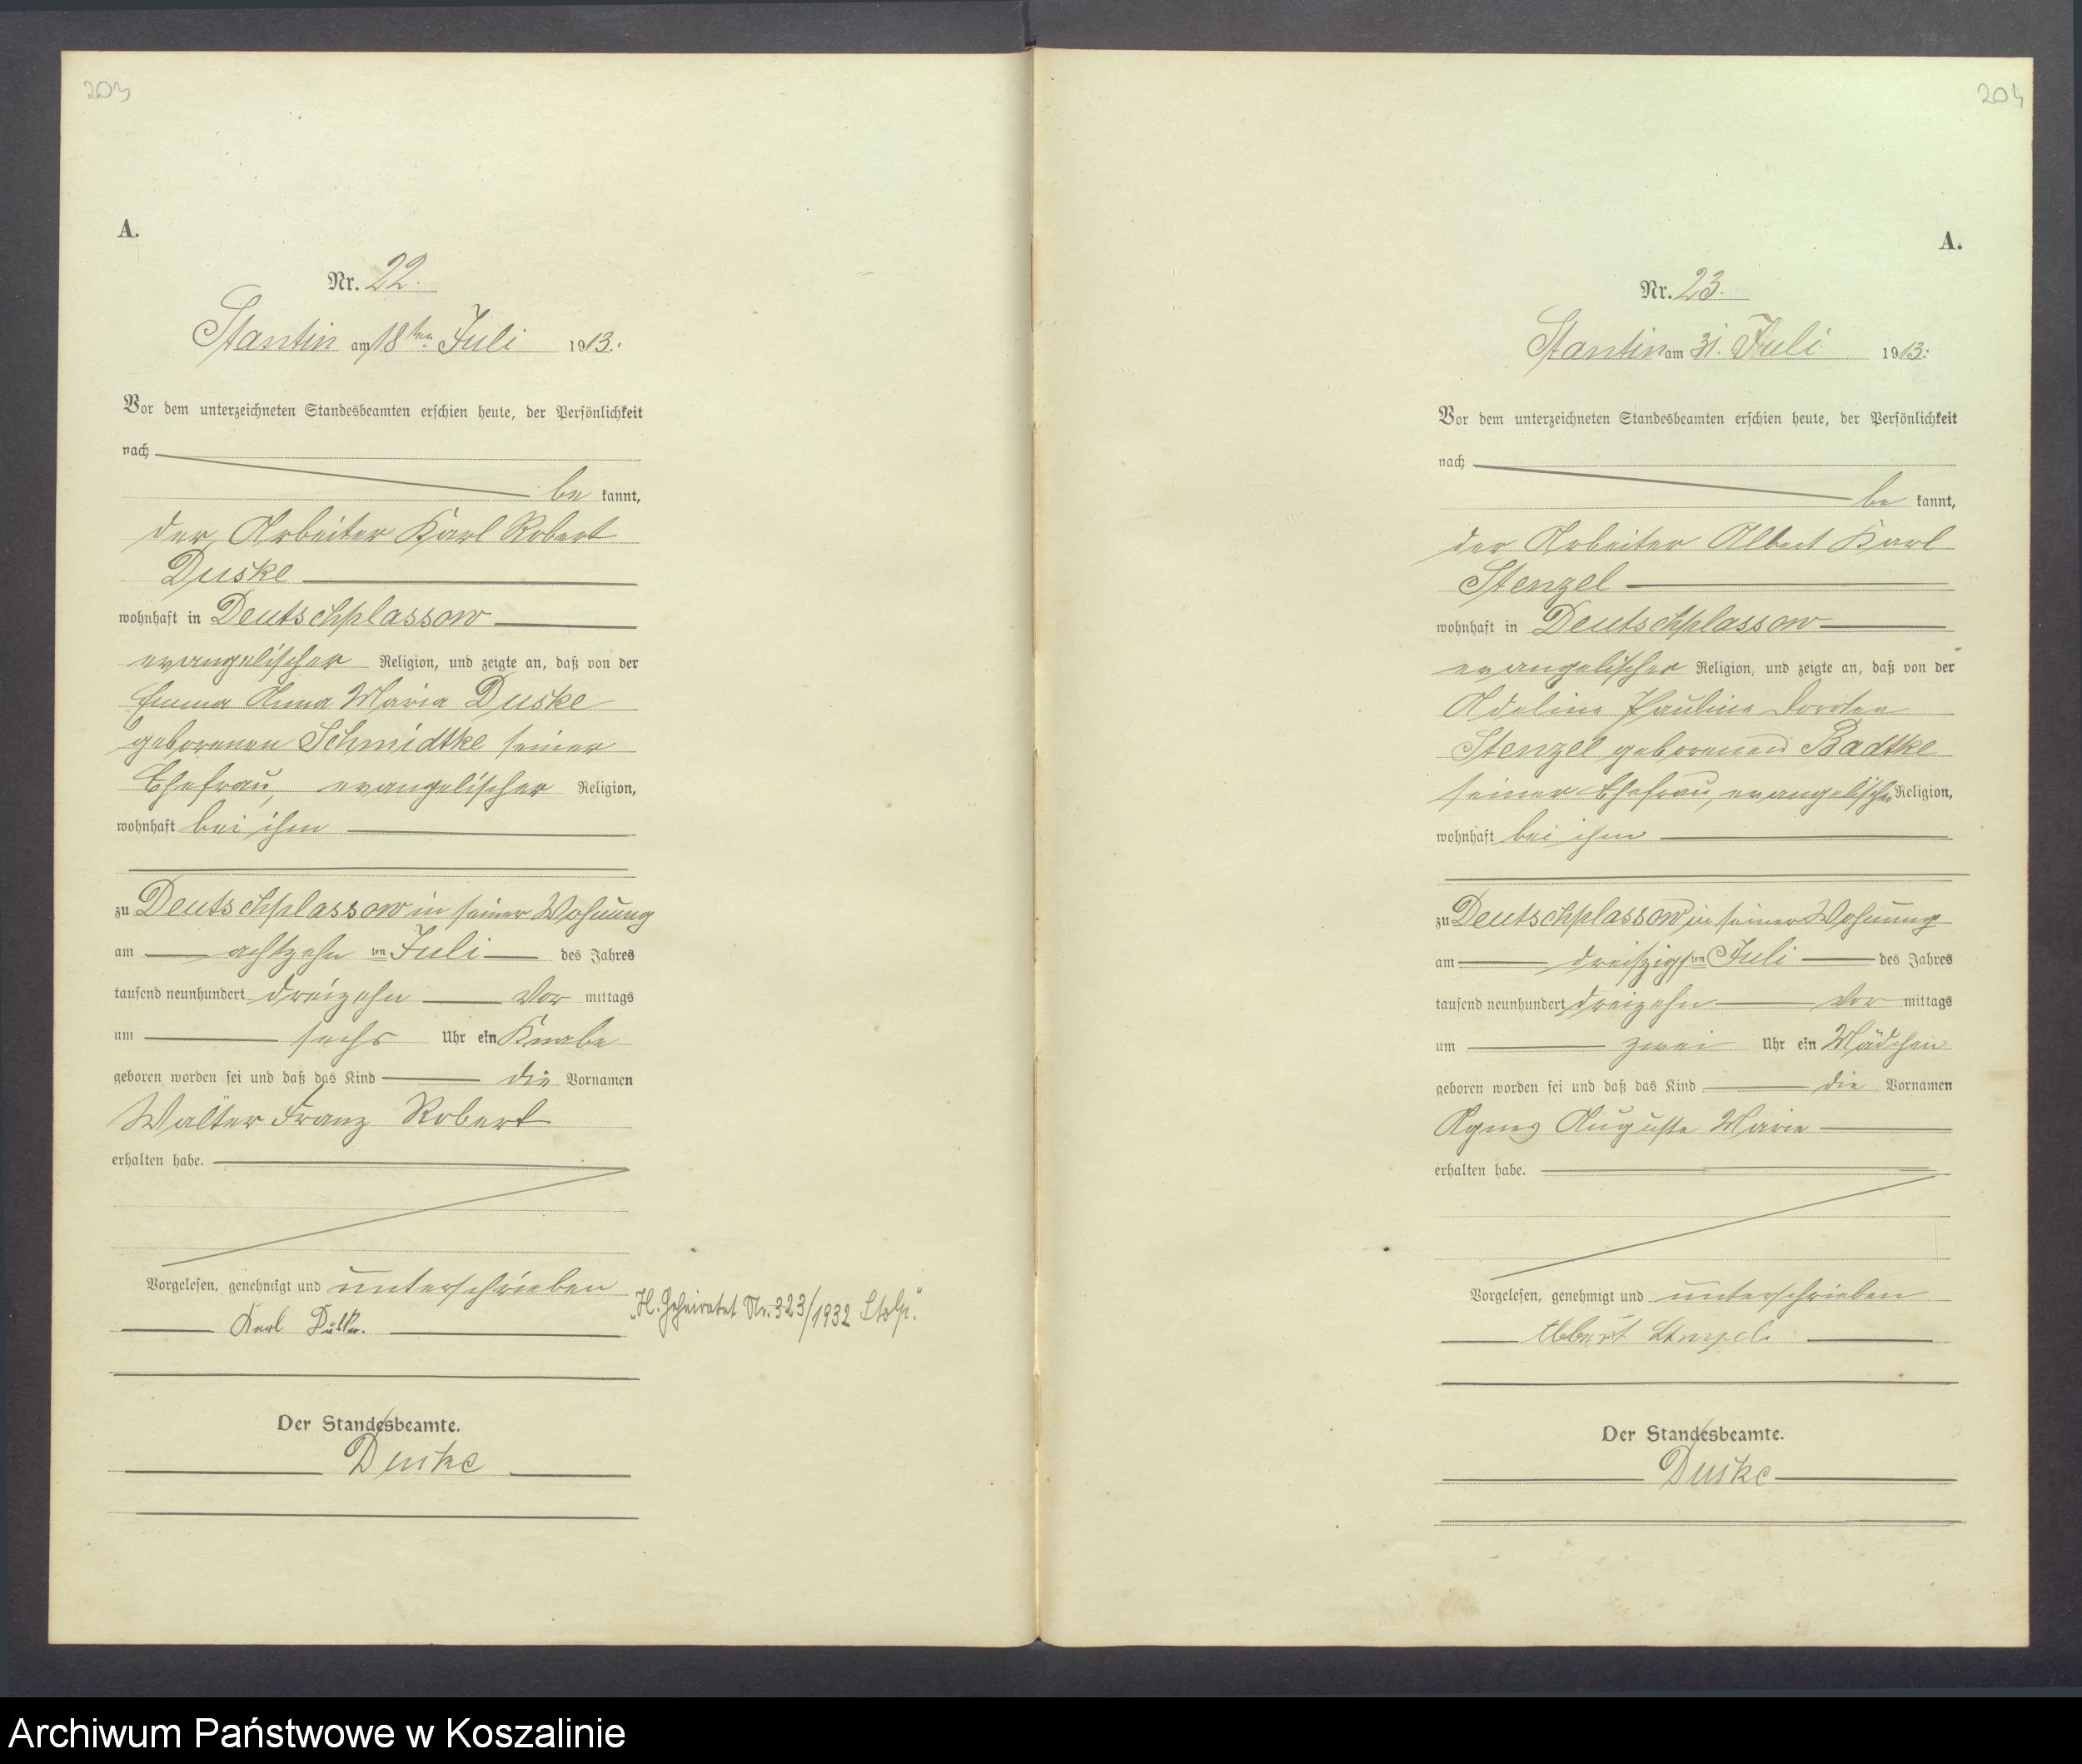 203
A.
Nr. 22.
Stantin am 18ten Juli 1913.
Vor dem unterzeichneten Standesbeamten erschien heute, der Persönlichkeit
nach
be kannt,
der Arbeiter Karl Robert
Duske
wohnhaft in Deutschplassow
evangelischer Religion, und zeigte an, daß von der
Emma Anna Maria Duske
geborenen Schmidtke seiner
Ehefrau, evangelischer Religion,
wohnhaft bei ihm
zu Deutschplassow in seiner Wohnung
am achtzehn ten Juli des Jahres
tausend neunhundert dreizehn Vor mittags
um sechs Uhr ein Knabe
geboren worden sei und daß das Kind die Vornamen
Walter Franz Robert
erhalten habe.
Vorgelesen, genehmigt und unterschrieben
Karl Duske.
"H. Geheiratet Nr. 323/1932 Stolp."
Der Standesbeamte.
Duske
204
A.
Nr. 23.
Stantin am 31. Juli 1913.
Vor dem unterzeichneten Standesbeamten erschien heute, der Persönlichkeit
nach
be kannt,
der Arbeiter Albert Karl
Stenzel
wohnhaft in Deutschplassow
evangelischer Religion, und zeigte an, daß von der
Adeline Pauline Dorotea
Stenzel geborenen Badtke
seiner Ehefrau, evangelischer Religion,
wohnhaft bei ihm
zu Deutschplassow in seiner Wohnung
am dreißigsten Juli des Jahres
tausend neunhundert dreizehn Vor mittags
um zwei Uhr ein Mädchen
geboren worden sei und daß das Kind die Vornamen
Agnes Auguste Marie
erhalten habe.
Vorgelesen, genehmigt und unterschrieben
Albert Stenzel.
Der Standesbeamte.
Duske
Archiwum Państwowe w Koszalinie